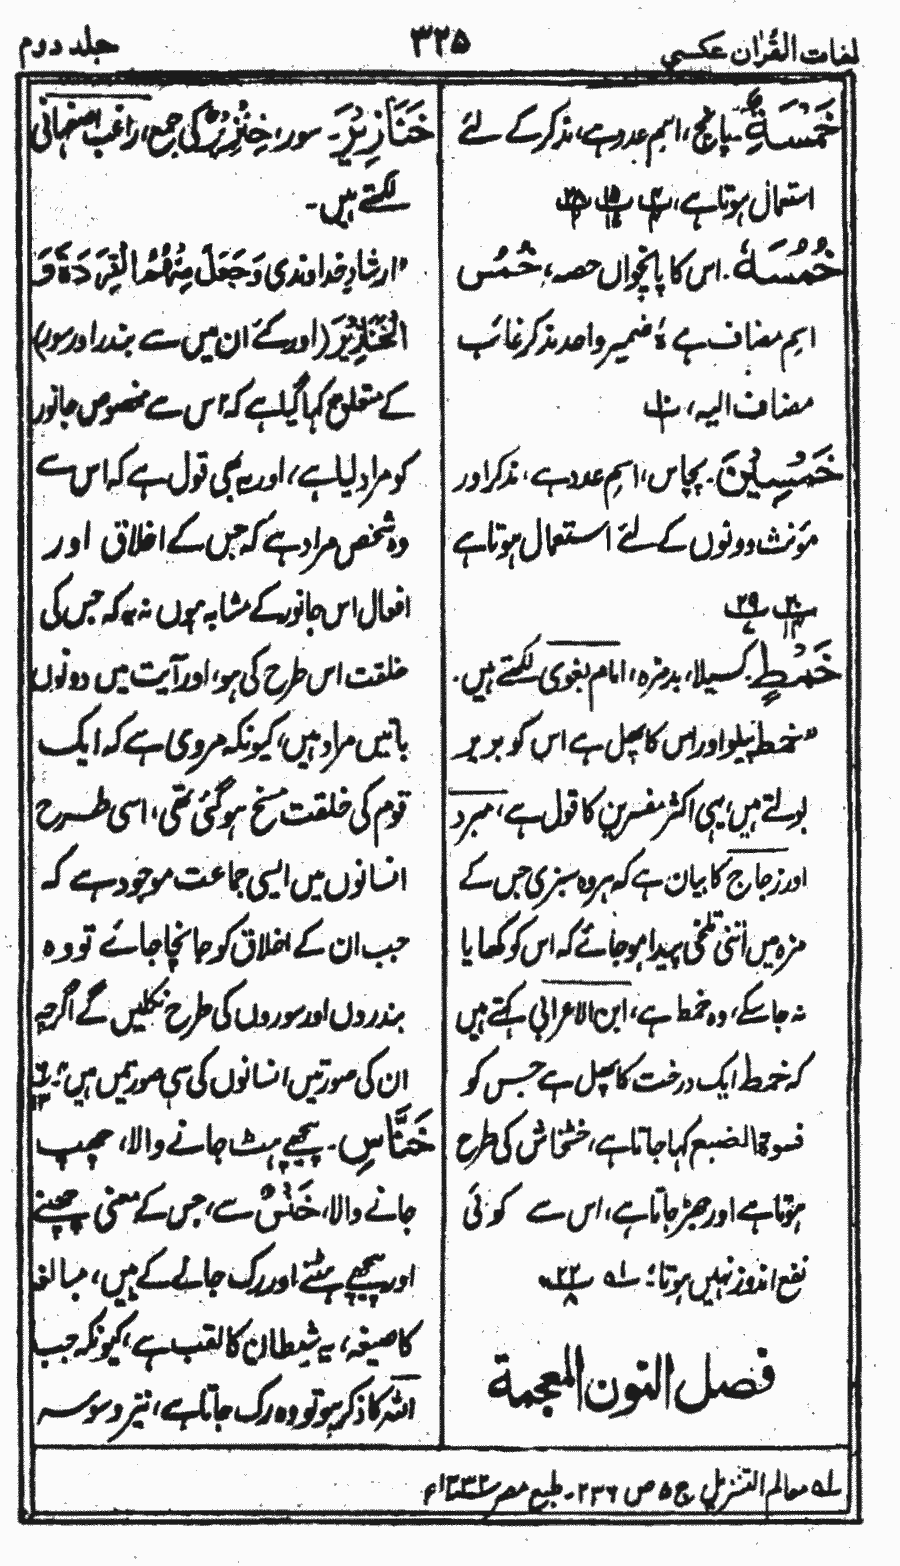 لغات القرآن عکسی
۳۲۵
جلد دوم
خَمْسَةٍ۔ پانچ، اسم عدد ہے، مذکر کے لئے
استعمال ہوتا ہے،
خُمُسَهٗ ۔ اس کا پانچواں حصہ، خُمُس
اسم مضاف ہے ہٗ ضمیر واحد مذکر غائب
مضاف الیہ،
خَمْسِيْنَ ۔ پچاس، اسم عدد ہے، مذکر اور
مؤنث دونوں کے لئے استعمال ہوتا ہے
خَمْطٍ ۔ کسیلا، بدمزہ، امام بغوی لکھتے ہیں ۔
"خمط پیلو اور اس کا پھل ہے اس کو بریر
بولتے ہیں، یہی اکثر مفسرین کا قول ہے، مبرد
اور زجاج کا بیان ہے کہ ہر وہ سبزی جس کے
مزہ میں اتنی تلخی پیدا ہو جائے کہ اس کو کھایا
نہ جا سکے، وہ خمط ہے، ابن الاعرابی کہتے ہیں
کہ خمط ایک درخت کا پھل ہے جس کو
فسوۃ الضبع کہا جاتا ہے، خشخاش کی طرح
ہوتا ہے اور جھڑ جاتا ہے، اس سے کوئی
نفع اندوز نہیں ہوتا؛ لہ
فصل النون المعجمة
خَنَازِيْرَ ۔ سور، خِنْزِيْرٌ کی جمع، راغب اصفہانی
لکھتے ہیں ۔
"ارشادِ خداوندی وَجَعَلَ مِنْهُمُ الْقِرَدَةَ وَ
الْخَنَازِيْرَ (اور کئے ان میں سے بندر اور سور)
کے متعلق کہا گیا ہے کہ اس سے مخصوص جانور
کو مراد لیا ہے، اور یہ بھی قول ہے کہ اس سے
وہ شخص مراد ہے کہ جس کے اخلاق اور
افعال اس جانور کے مشابہ ہوں نہ یہ کہ جس کی
خلقت اس طرح کی ہو، اور آیت میں دونوں
باتیں مراد ہیں، کیونکہ مروی ہے کہ ایک
قوم کی خلقت مسخ ہو گئی تھی، اسی طرح
انسانوں میں ایسی جماعت موجود ہے کہ
جب ان کے اخلاق کو جانچا جائے تو وہ
بندروں اور سوروں کی طرح نکلیں گے اگرچہ
ان کی صورتیں انسانوں کی سی صورتیں ہیں"
خَنَّاسِ ۔ پیچھے ہٹ جانے والا، چھپ
جانے والا، خَنْسٌ سے، جس کے معنی چھپنے
اور پیچھے ہٹنے اور رک جانے کے ہیں، مبالغہ
کا صیغہ، یہ شیطان کا لقب ہے، کیونکہ جب
اللہ کا ذکر ہو تو وہ رک جاتا ہے، نیز وسوسہ
لہ معالم التنزیل ج ۵ ص ۲۳۶ ۔ طبع مصر ۱۳۳۲ھ